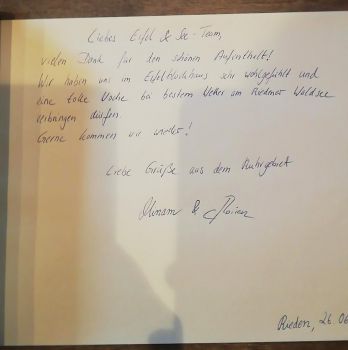 Liebes Eifel & See-Team,
vielen Dank für den schönen Aufenthalt!
Wir haben uns im Eifelblockhaus sehr wohlgefühlt und
eine tolle Woche bei bestem Wetter am Riedener Waldsee
verbringen dürfen.
Gerne kommen wir wieder!
Liebe Grüße aus dem Ruhrgebiet
&
Rieden, 26.06